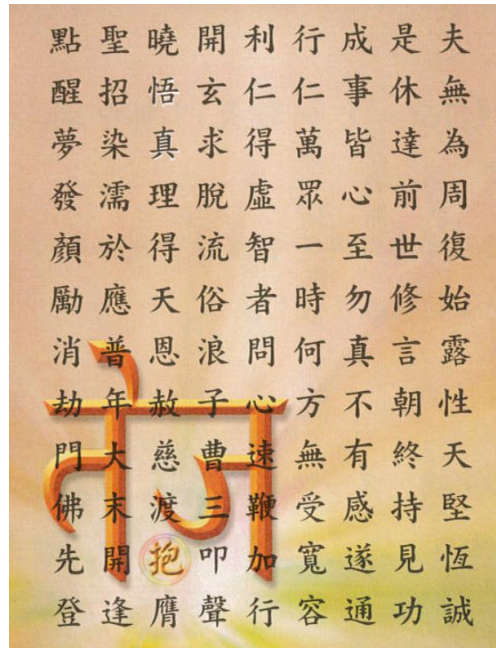 夫無為周復始露性天堅恆誠
是休達前世修言朝終持見功
成事皆心至勿真不有感遂通
行仁萬眾一時何方無受寬容
利仁得虛智者問心速鞭加行
開玄求脫流俗浪子曹三叩聲
曉悟真理得天恩赦慈渡抱膺
聖招染濡於應普年大末開逢
點醒夢發顏勵消劫門佛先登